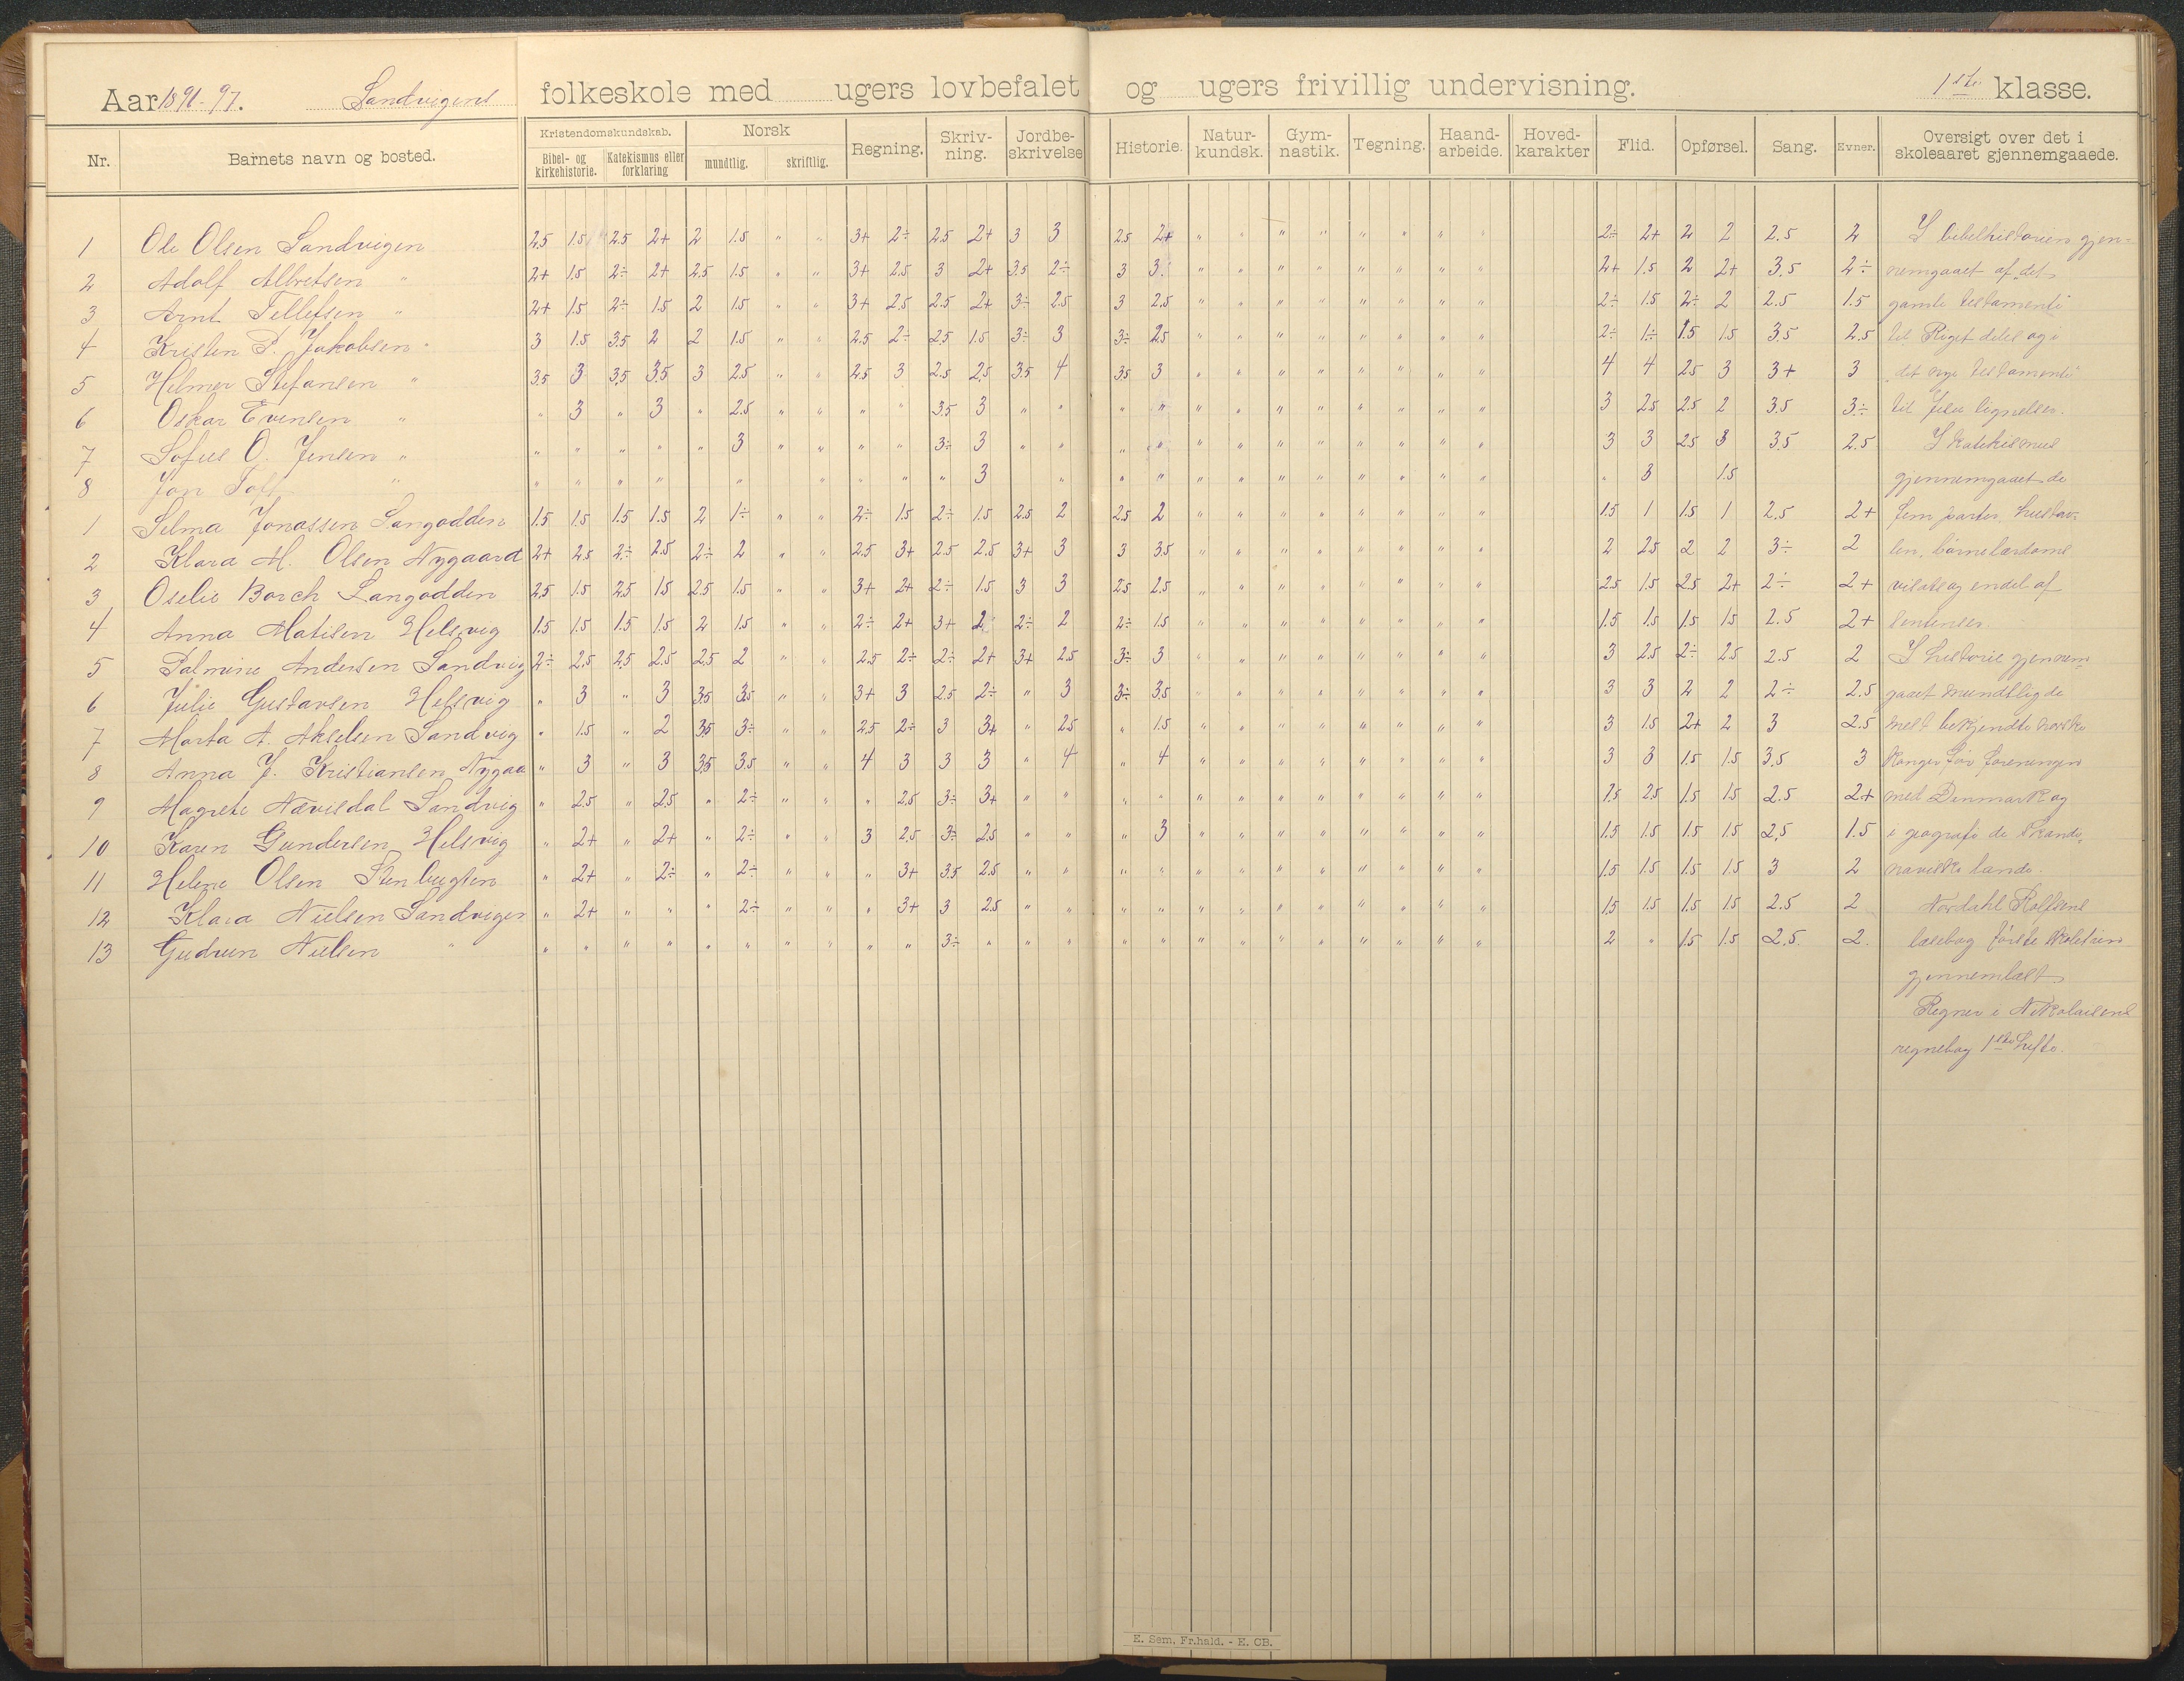 Aar 1896-97. Sandvigens folkeskole med ugers lovbefalet og ugers frivillig undervisning. 1ste klasse.
Nr. Barnets navn og bosted. Kristendomskundskab. Bibel- og kirkehistorie. Katekismus eller forklaring Norsk mundtlig. skriftlig. Regning. Skriv-ning. Jordbe-skrivelse Historie. Natur-kundsk. Gym-nastik. Tegning. Haand-arbeide. Hoved-karakter Flid. Opførsel. Sang. Evner. Oversigt over det i skoleaaret gjennemgaaede.
1 Ole Olsen Sandvigen 2.5 1.5 2.5 2+ 2 1.5 " " 3+ 2÷ 2.5 2+ 3 3 2.5 2+ " " " " " " " " 2÷ 2+ 2 2 2.5 2 I bibelhistorien gjen-
2 Adolf Albretsen " 2+ 1.5 2÷ 2+ 2.5 1.5 " " 3+ 2.5 3 2+ 3.5 2÷ 3 3 " " " " " " " " 2+ 1.5 2 2+ 3.5 2÷ nemgaaet af det
3 Arnt Tellefsen " 2+ 1.5 2÷ 1.5 2 1.5 " " 3+ 2.5 2.5 2+ 3÷ 2.5 3 2.5 " " " " " " " " 2÷ 1.5 2÷ 2 2.5 1.5 gamle testamente
4 Kristen P. Jakobsen " 3 1.5 3.5 2 2 1.5 " " 2.5 2÷ 2.5 1.5 3÷ 3 3÷ 2.5 " " " " " " " " 2÷ 1÷ 1.5 1.5 3.5 2.5 til Riget deles og i
5 Helmer Stefansen " 3.5 3 3.5 3.5 3 2.5 " " 2.5 3 2.5 2.5 3.5 4 3.5 3 " " " " " " " " 4 4 2.5 3 3+ 3 det nye testamente
6 Oskar Evensen " " 3 " 3 " 2.5 " " " " 3.5 3 " " " " " " " " " " " " 3 2.5 2.5 2 3.5 3÷ til Jesu lignelser.
7 Sofus O. Jensen " " " " " " 3 " " " " 3÷ 3 " " " " " " " " " " " " 3 3 2.5 3 3.5 2.5 I katekismus
8 Jon Toft " " " " " " " " " " 3 " " " " " " " " " " " " 3 1.5 gjennemgaaet de
1 Selma Jonassen Langodden 1.5 1.5 1.5 1.5 2 1÷ " " 2÷ 1.5 2÷ 1.5 2.5 2 2.5 2 " " " " " " " " 1.5 1 1.5 1 2.5 2+ fem parter, hustav-
2 Klara M. Olsen Nygaard 2+ 2.5 2÷ 2.5 2÷ 2 " " 2.5 3+ 2.5 2.5 3+ 3 3 3.5 " " " " " " " " 2 2.5 2 2 3÷ 2 len, børnelærdoms
3 Oselie Borch Langodden 2.5 1.5 2.5 1.5 2.5 1.5 " " 3+ 2+ 2÷ 1.5 3 3 2.5 2.5 " " " " " " " " 2.5 1.5 2.5 2+ 2÷ 2+ og endel af
4 Anna Matisen Helsvig 1.5 1.5 1.5 1.5 2 1.5 " " 2÷ 2+ 3+ 2 2÷ 2 2÷ 1.5 " " " " " " " " 1.5 1.5 1.5 1.5 2.5 2+ sentenser.
5 Palmine Andersen Sandvig 2÷ 2.5 2.5 2.5 2.5 2 " " 2.5 2÷ 2÷ 2+ 3+ 2.5 3÷ 3 " " " " " " " " 3 2.5 2÷ 2.5 2.5 2 I historie gjennem
6 Julie Gustavsen Helsvig " 3 " 3 3.5 3.5 " " 3+ 3 2.5 2÷ " 3 3÷ 3.5 " " " " " " " " 3 3 2 2 2÷ 2.5 gaaet mundtlig de
7 Marta A. Akselsen Sandvig " 1.5 " 2 3.5 3÷ " " 2.5 2÷ 3 3+ " 2.5 " 1.5 " " " " " " " " 3 1.5 2+ 2 3 2.5 mest bekjendte norske
8 Anna J. Kristiansen Nygaa " 3 " 3 3.5 3.5 " " 4 3 3 3 " 4 " 4 " " " " " " " " 3 3 1.5 1.5 3.5 3 konger før foreningen
9 Magrete Nævisdal Sandvig " 2.5 " 2.5 " 2÷ " " " 2.5 3÷ 3+ " " " " " " " " " " " " 2.5 2.5 1.5 1.5 2.5 2+ med Danmark og
10 Karen Gundersen Helsvig " 2+ " 2+ " 2÷ " " 3 2.5 3÷ 2.5 " " " 3 " " " " " " " " 1.5 1.5 1.5 1.5 2.5 1.5 i geografi de skandi-
11 Helene Olsen Stenbugten " 2+ " 2÷ " 2÷ " " " 3+ 3.5 2.5 " " " " " " " " " " " " 1.5 1.5 1.5 1.5 3 2 naviske lande.
12 Klara Nielsen Sandvigen " 2+ " " " 2÷ " " " 3+ 3 2.5 " " " " " " " " " " " " 1.5 1.5 1.5 1.5 2.5 2 Nordahl Rolfsens
13 Gudrun Nielsen " " " " " " " " " " " 3÷ " " " " " " " " " " " " " 2 " 1.5 1.5 2.5. 2. læsebog første skoletrin
gjennemlæst
Regner i Nikolaisens
regnebog 1ste hefte.
E. Sem, Fr.hald. - E. OB.